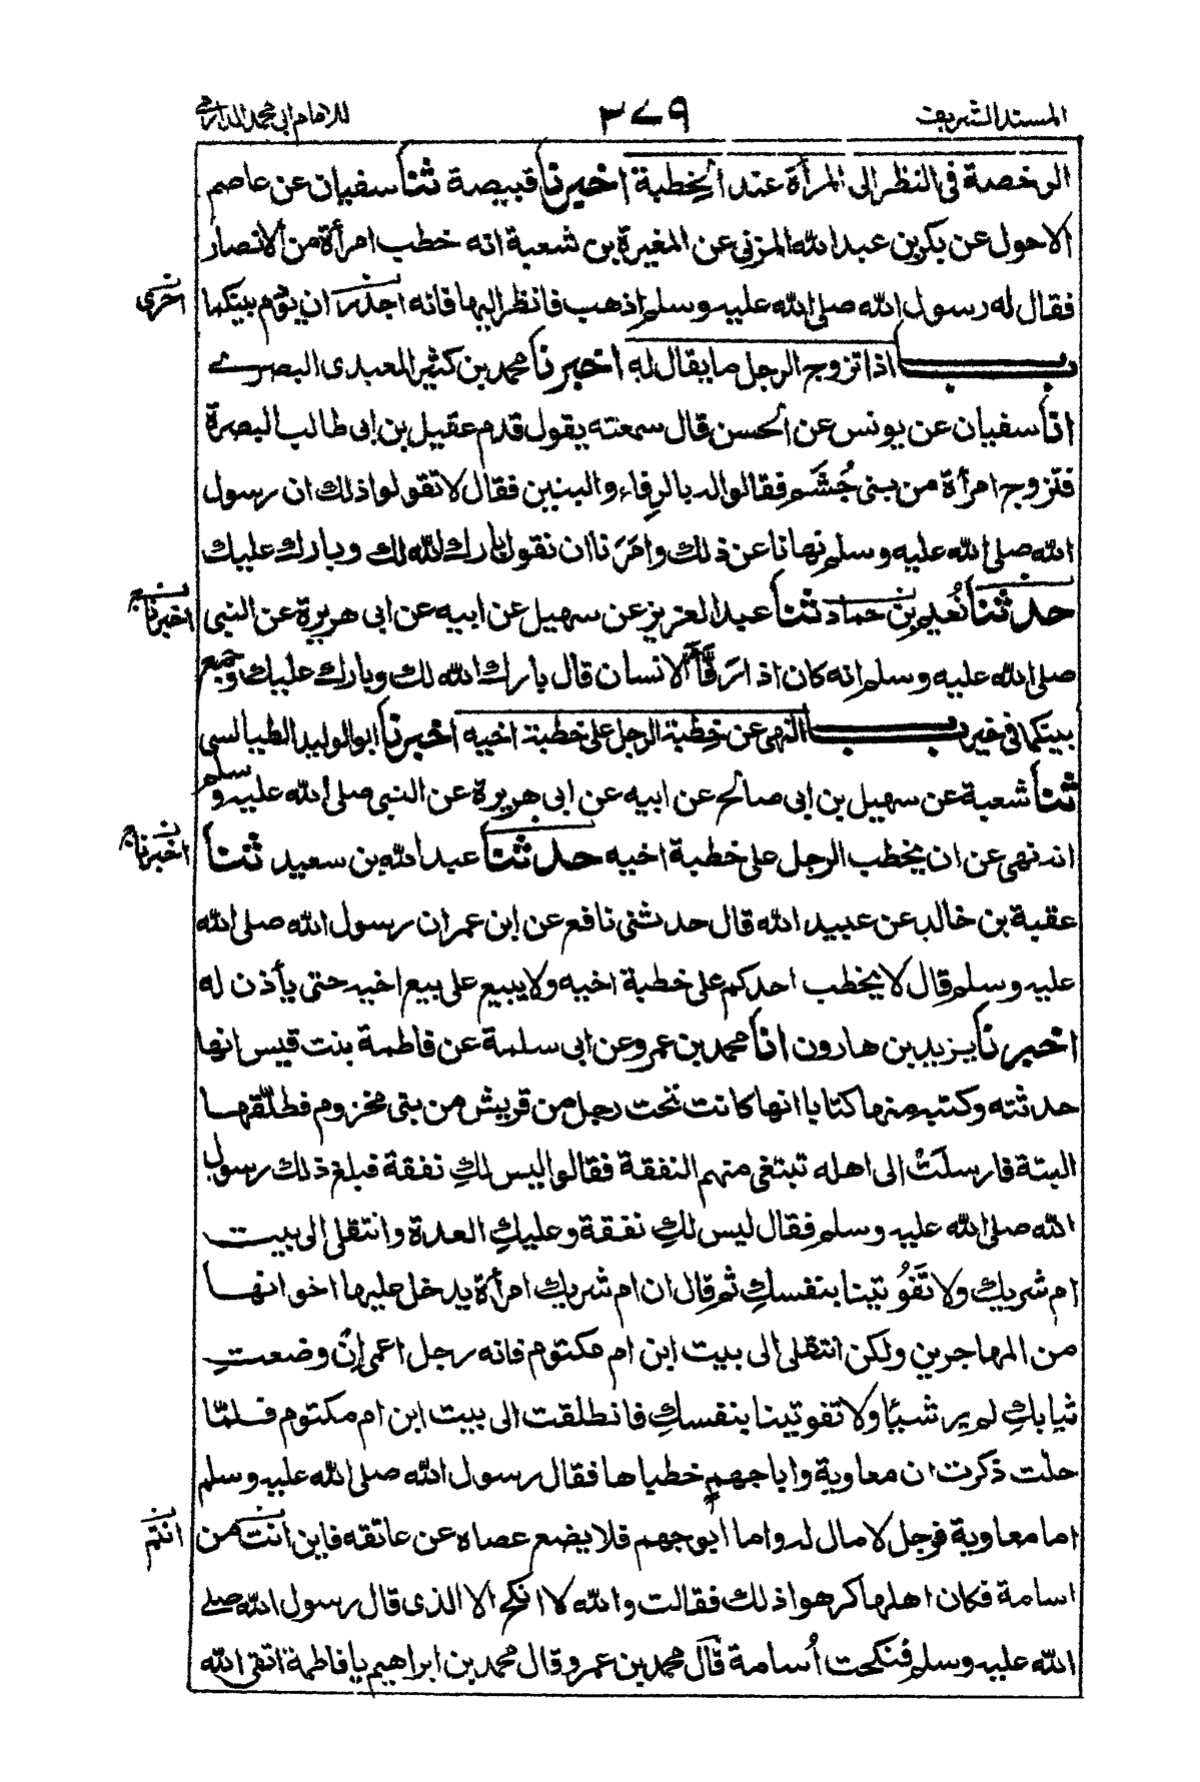 المسند الشريف
٣٧٩
للامام ابى محمد الدارمى
الرخصة فى النظر الى المرأة عند الخطبة اخبرنا قبيصة ثنا سفيان عن عاصم
الاحول عن بكر بن عبد الله المزنى عن المغيرة بن شعبة انه خطب امرأة من الانصار
فقال له رسول الله صلى الله عليه وسلم اذهب فانظر اليها فانه اجدر ان يؤدم بينكما
اخرى
باب اذا تزوج الرجل ما يقال له اخبرنا محمد بن كثير العبدى البصرے
انا سفيان عن يونس عن الحسن قال سمعته يقول قدم عقيل بن ابى طالب البصرة
فتزوج امرأة من بنى جُشَم فقالوا له بالرِفاء والبنين فقال لا تقولوا ذلك ان رسول
الله صلى الله عليه وسلم نهانا عن ذلك وامَرَنا ان نقول بارك الله لك وبارك عليك
حدثنا نُعيم بن حماد ثنا عبد العزيز عن سهيل عن ابيه عن ابى هريرة عن النبى
اخبرنا
صلى الله عليه وسلم انه كان اذا رَفَّأ الانسان قال بارك الله لك وبارك عليك وجمع
بينكما فى خير باب النهى عن خِطبة الرجل على خطبة اخيه اخبرنا ابو الوليد الطيالسى
ثنا شعبة عن سهيل بن ابى صالح عن ابيه عن ابى هريرة عن النبى صلى الله عليه وسلم
انه نهى عن ان يخطب الرجل على خطبة اخيه حدثنا عبد الله بن سعيد ثنا
اخبرنا
عقبة بن خالد عن عبيد الله قال حدثنى نافع عن ابن عمر ان رسول الله صلى الله
عليه وسلم قال لا يخطب احدكم على خطبة اخيه ولا يبيع على بيع اخيه حتى يأذن له
اخبرنا يزيد بن هارون انا محمد بن عمرو عن ابى سلمة عن فاطمة بنت قيس انها
حدثته وكتبه منها كتابا انها كانت تحت رجل من قريش من بنى مخزوم فطلّقها
البتة فارسلَتْ الى اهله تبتغى منهم النفقة فقالوا ليس لكِ نفقة فبلغ ذلك رسول
الله صلى الله عليه وسلم فقال ليس لكِ نفقة وعليكِ العدة وانتقلى الى بيت
ام شريك ولا تَفُوتينا بنفسكِ ثم قال ان ام شريك امرأة يدخل عليها اخوانها
من المهاجرين ولكن انتقلى الى بيت ابن ام مكتوم فانه رجل اعمى اِنْ وضعتِ
ثيابكِ لم ير شيئًا ولا تفوتينا بنفسكِ فانطلقت الى بيت ابن ام مكتوم فلمّا
حلّت ذكرت ان معاوية وابا جهم خطباها فقال رسول الله صلى الله عليه وسلم
اما معاوية فرجل لا مال له واما ابو جهم فلا يضع عصاه عن عاتقه فاين انت من
انتم
اسامة فكان اهلها كرهوا ذلك فقالت والله لا انكح الا الذى قال رسول الله صلے
الله عليه وسلم فنكحت اُسامة قال محمد بن عمرو قال محمد بن ابراهيم يا فاطمة اتقى الله